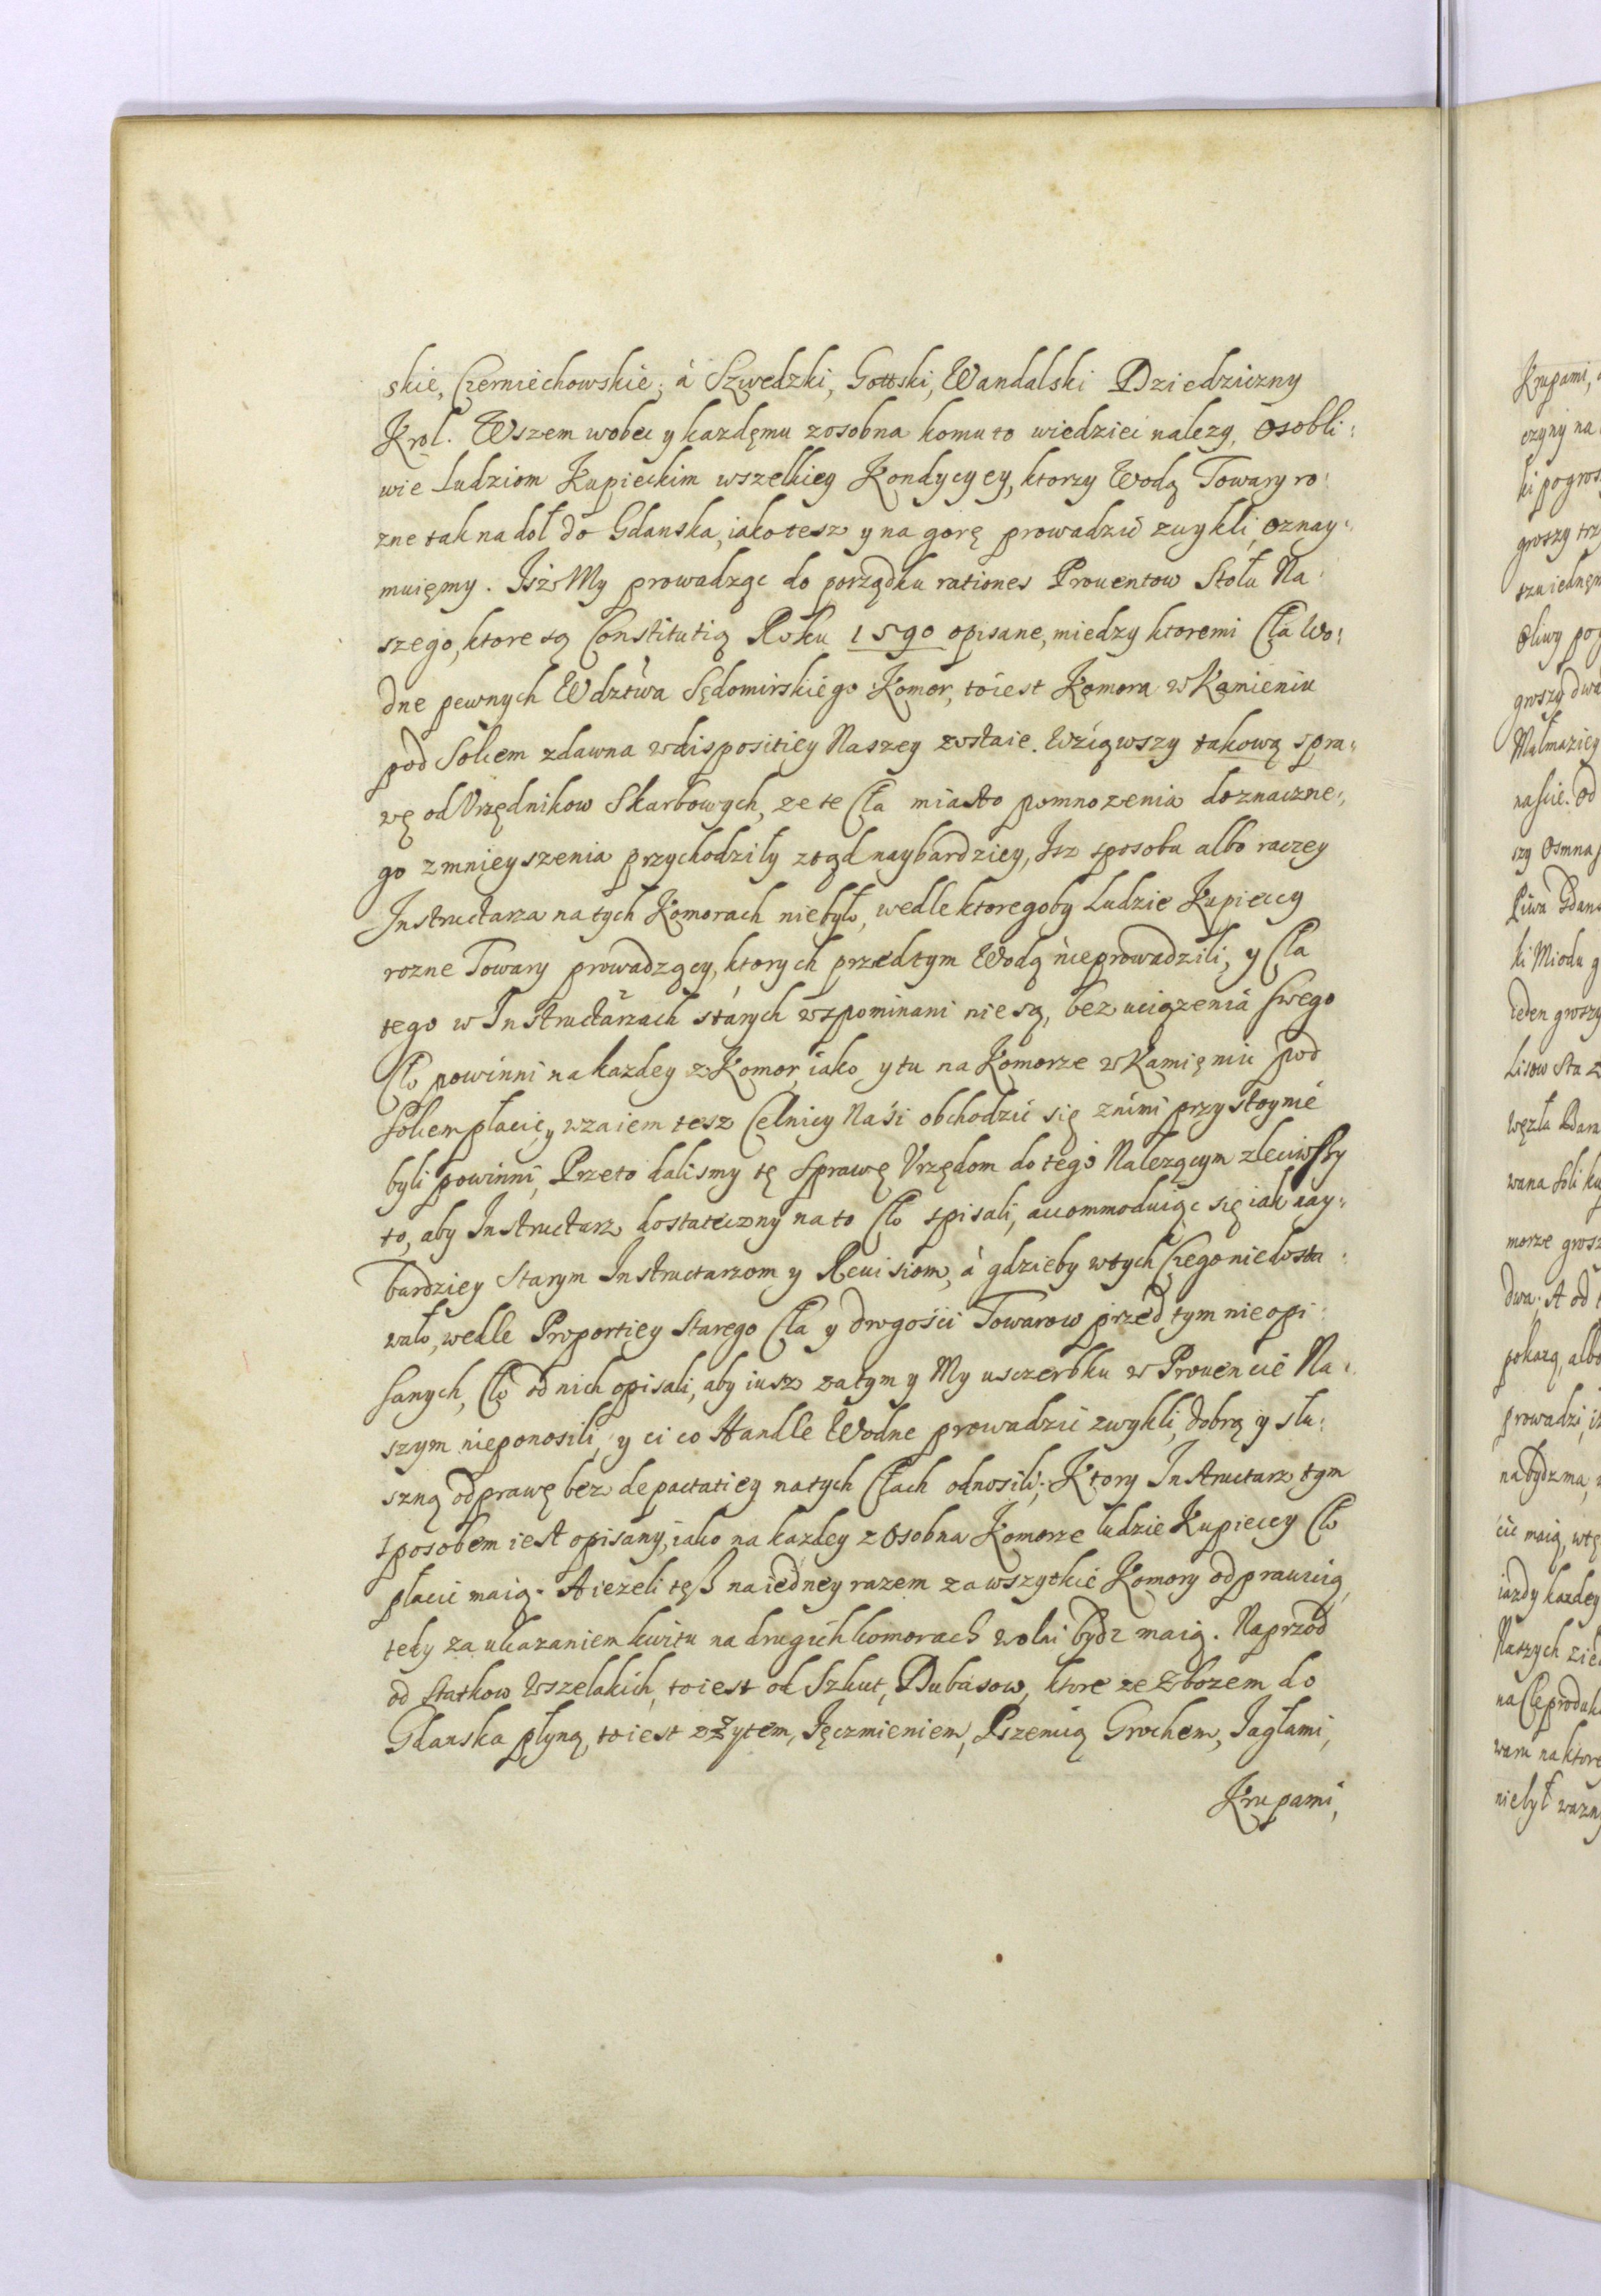 skie, Czerniechowskie, à Szwedzki, Gottski, Wandalski Dziedziczny
Krol. Wszem wobec y kazdęmu zosobna komu to wiedzieć nalezy, osobli:
wie Ludziom Kupieckim wszelkiey Kondycyey, ktorzy Wodą Towary ro:
zne tak na doł do Gdanska, iako tesz y na gorę prowadzić zwykli, oznay:
muięmy. Isz My prowadząc do porządku rationes Prouentow Stołu Na:
szego, ktore są Constitutią Roku 1590 opisane, miedzy ktoremi Cła Wo:
dne pewnych Wdztwa Sędomirskiego Komor, toiest Komora w Kamieniu
pod Solcem zdawna w dispositiey Naszey zostaie. Wziąwszy takową spra:
wę od Vrzędnikow Skarbowych, ze te Cła miasto pomnozenia do znaczne:
go zmnieyszenia przychodziły ztąd naybardziey, Isz sposobu albo raczey
Instructarza na tych Komorach niebyło, wedle ktoregoby Ludzie Kupieccy
rozne Towary prowadzący, ktorych przedtym Wodą nieprowadzili, y Cła
tego w Instructarzach starych wspominani nie są, bez uciązenia swego
Cło powinni na kazdey z Komor, iako y tu na Komorze w Kamięniu pod
Solcem płacić, y wzaiem tesz Celnicy Nasi obchodzić się znimi przystoynie
byli powinni, Przeto dalismy tę Sprawę Vrzędom do tego Nalezącym zleciwszy
to, aby Instructarz dostateczny na to Cło spisali, accommoduiąc się iak nay:
bardziey Starym Instructarzom y Reuisiom, à gdzieby w tych Czego niedosta:
wało, wedle Proportiey Starego Cła y drogości Towarow przed tym nieopi:
sanych, Cło od nich opisali, aby iusz zatym y My usczerbku w Prouencie Na:
szym nieponosili, y ci co Handle Wodne prowadzić zwykli, dobrą y słu:
szną odprawę bez depactatiey na tych Cłach odnosili; Ktory Instructarz tym
sposobem iest opisany, iako na kazdey z Osobna Komorze ludzie Kupieccy Cło
płacić maią. A iezeli teß na iedney razem za wszytkie Komory odprawuią,
tedy za ukazaniem kwitu na drugich komorach wolni bydz maią. Naprzod
od Statkow Wszelakich, toiest od Szkut, Dubasow, ktore ze Zbozem do
Gdanska płyną, toiest z Zytem, Ięczmieniem, Pszenicą Grochem, Iagłami,
Krupami,